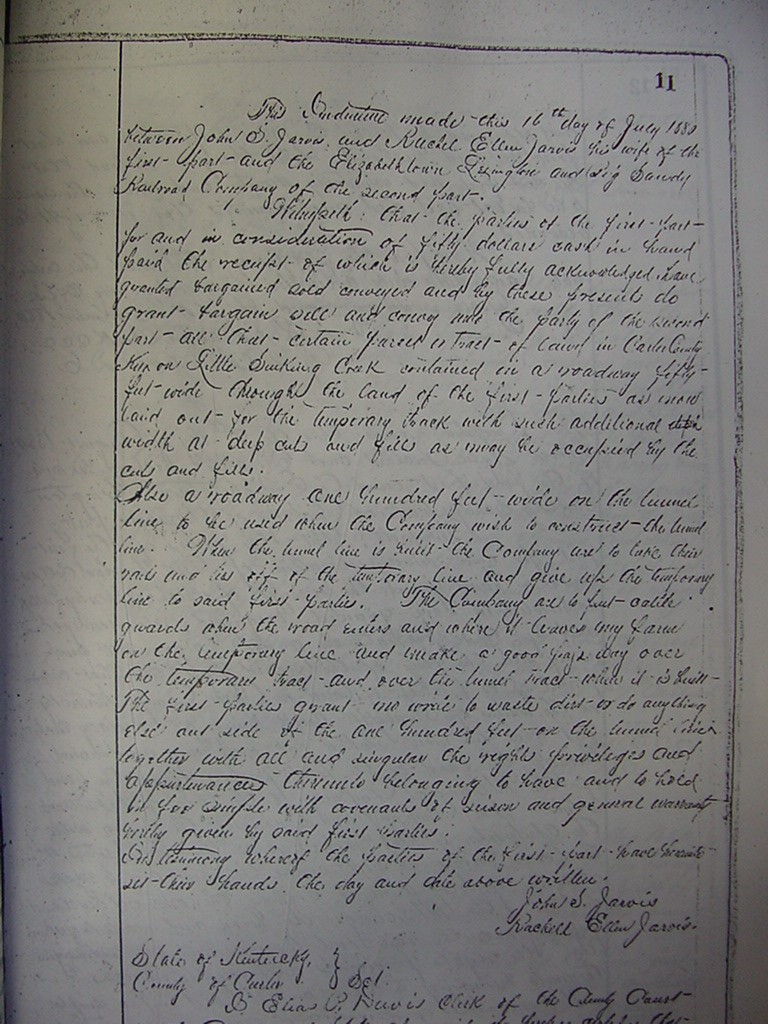 11
This Indenture made this 16th day of July 1880
between John S. Jarvis and Rachel Ellen Jarvis his wife of the
first part and the Elizabethtown Lexington and Big Sandy
Railroad Company of the second part.
Witnesseth: that the parties of the first part
for and in consideration of fifty dollars cash in hand
paid the receipt of which is hereby fully acknowledged have
granted bargained sold conveyed and by these presents do
grant bargain sell and convey unto the party of the second
part all that certain parcel or tract of land in Carter County
Ky on Little Sinking Creek contained in a roadway fifty
feet wide through the land of the first parties as now
laid out for the temporary track with such additional
width at deep cuts and fills as may be occupied by the
cuts and fills.
Also a roadway one hundred feet wide on the tunnel
line to be used when the Company wish to construct the tunnel
line. When the tunnel line is built the Company are to take their
rails and ties off of the temporary line and give up the temporary
line to said first parties. The Company are to put cattle
guards where the road enters and where it leaves my farm
on the temporary line and make a good way over
the temporary tract and over the tunnel tract when it is built
The first parties grant no write to waste dirt or do anything
else out side of the one hundred feet on the tunnel line
together with all and singular the rights priviledges and
appurtenances thereunto belonging to have and to hold
in fee simple with covenants of seisen and general warranty
hereby given by said first parties.
In testimony whereof the parties of the first part have hereunto
set their hands the day and date above written.
John S. Jarvis
Rachell Ellen Jarvis.
State of Kentucky, }
County of Carter } Sct.
I Elias P. Davis Clerk of the County Court